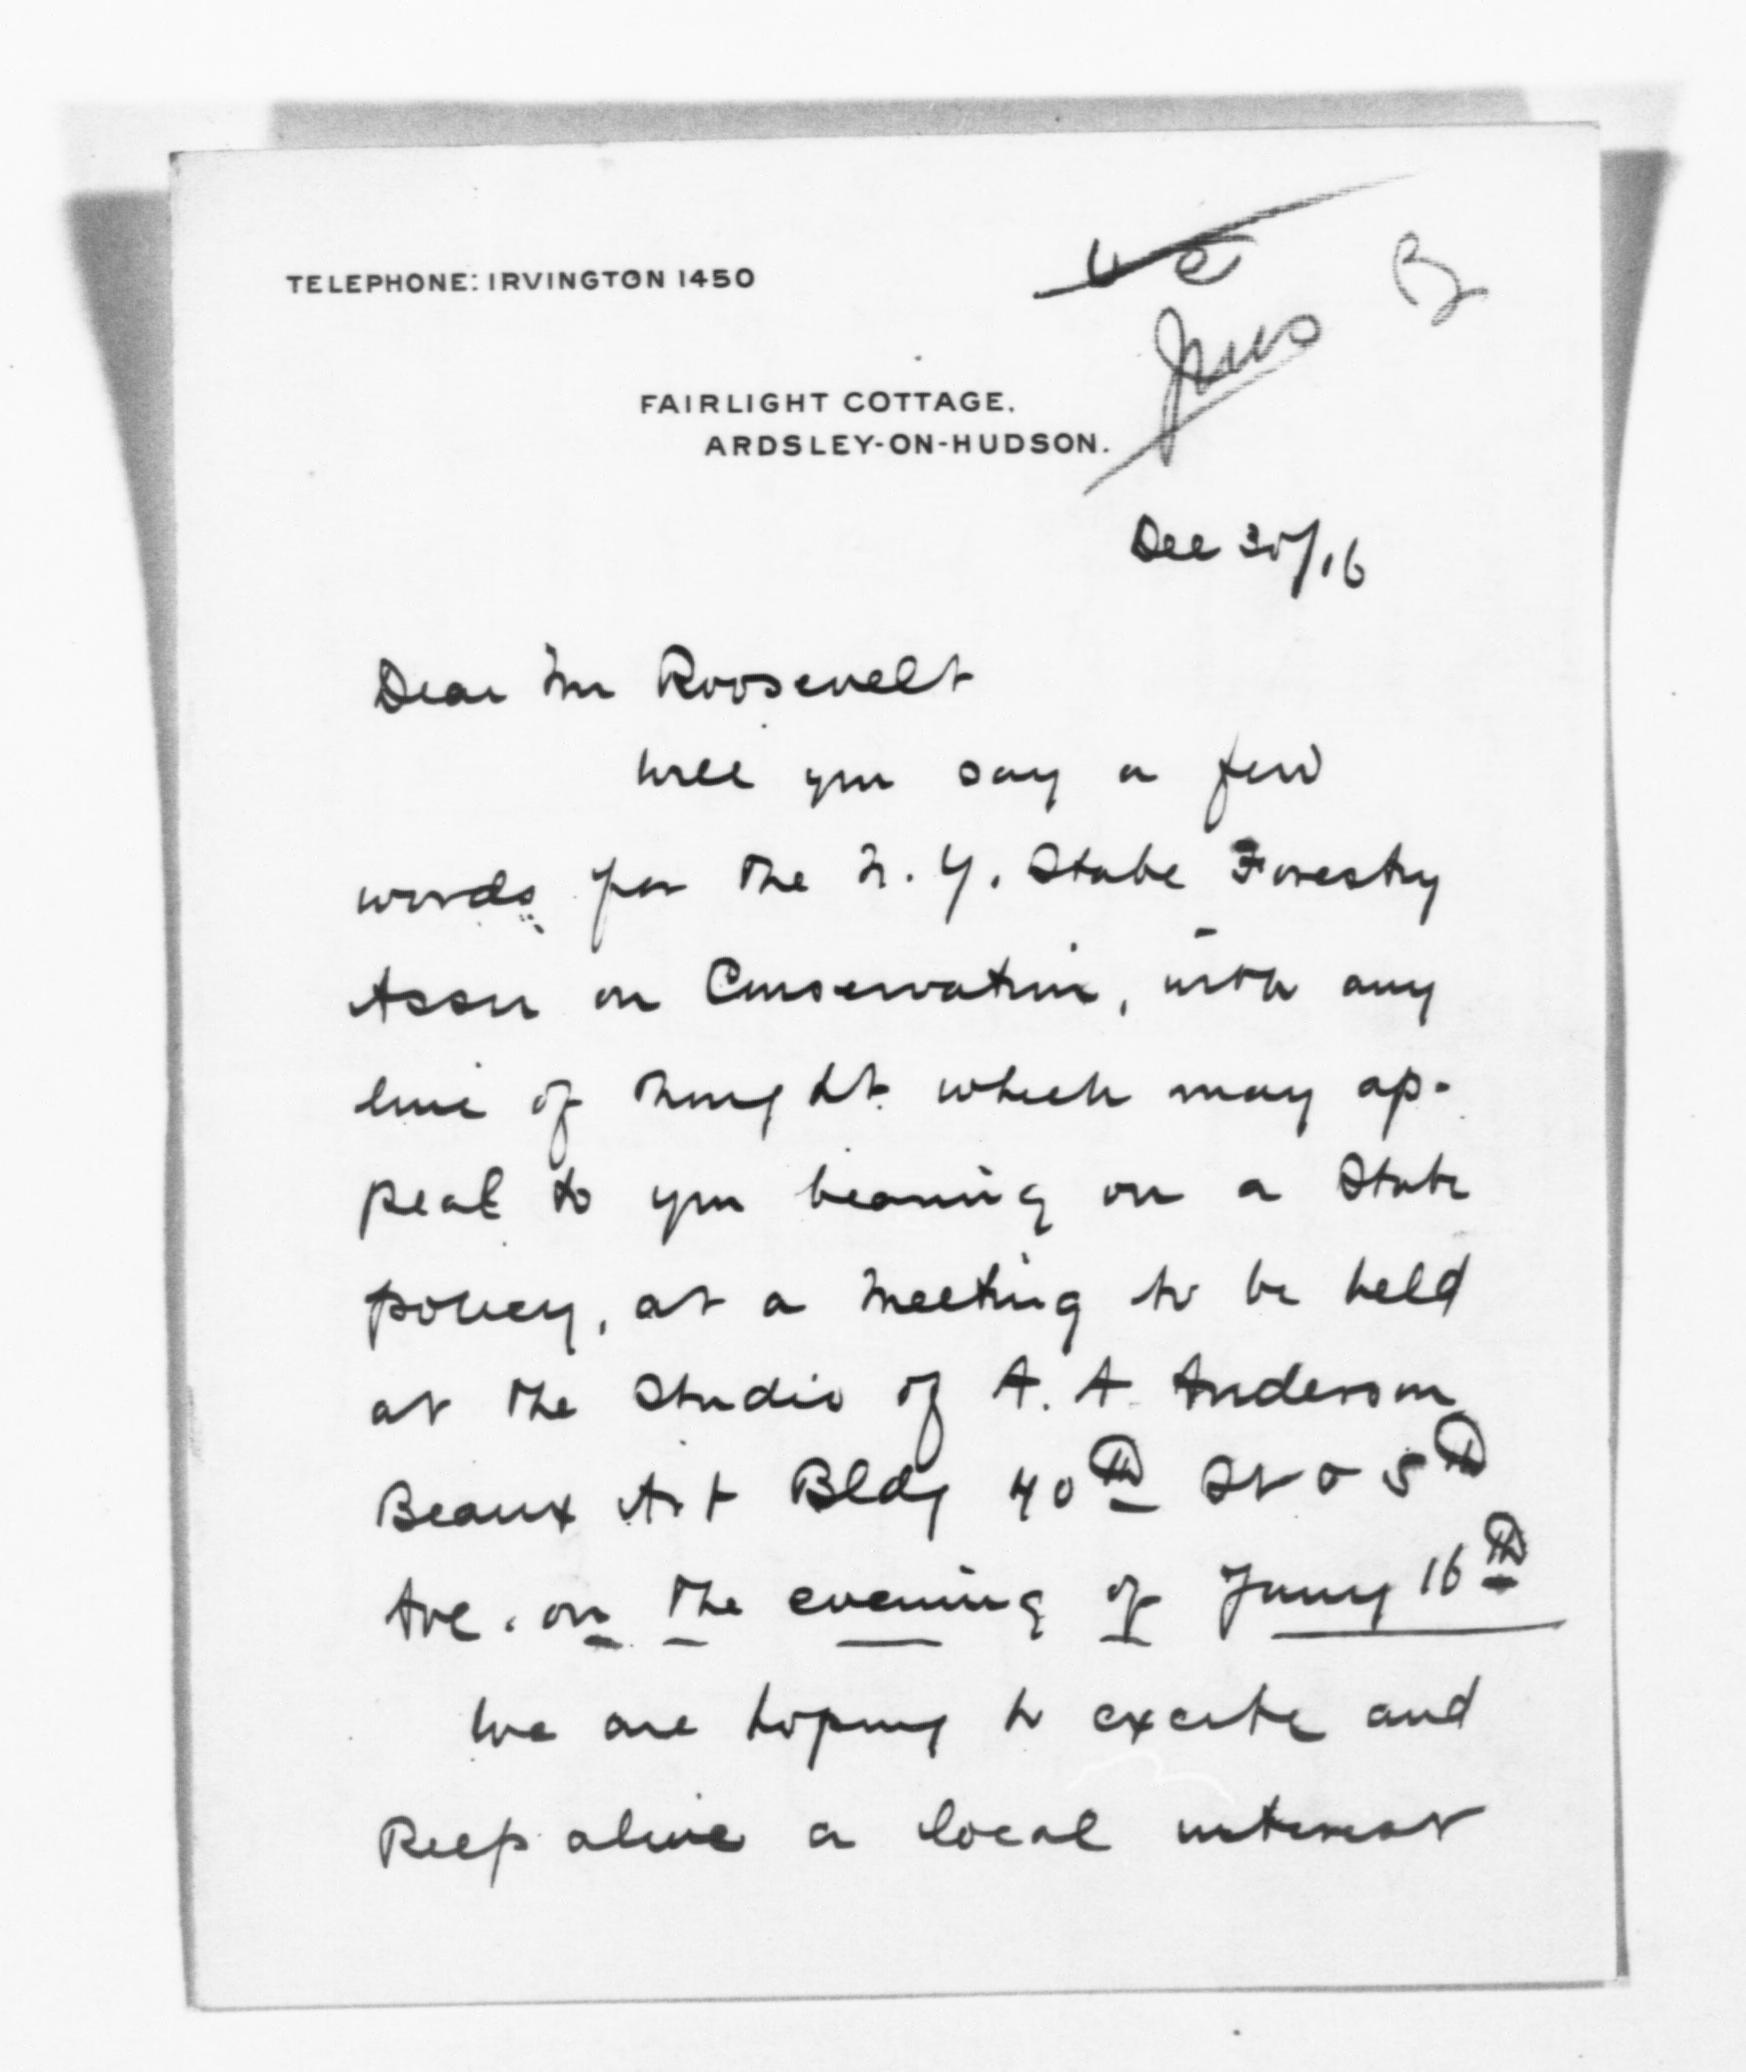 TELEPHONE: IRVINGTON 1450
B
FAIRLIGHT COTTAGE.
ARDSLEY-ON-HUDSON.
Dec 30/16
Dear Mr Roosevelt
Will you say a few
words for the N. Y. State Forestry
Assn on Conservation, with any
line of thought which may ap-
peal to you bearing on a State
policy, at a meeting to be held
at the Studio of A. A. Anderson
Beaux Art Bldg 40th St & 5th
Ave. on the evening of Jany 16th
We are hoping to excite and
keep alive a local interest